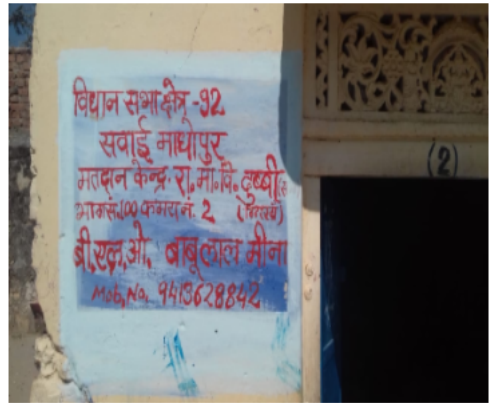 विधान सभा क्षेत्र -92
सवाई माधोपुर
मतदान केन्द्र. रा.मा.वि. दुब्बी
भाग सं. 100 कमरा नं. 2
बी.एल.ओ. बाबूलाल मीना
Mob. No. 9413628842
(2)